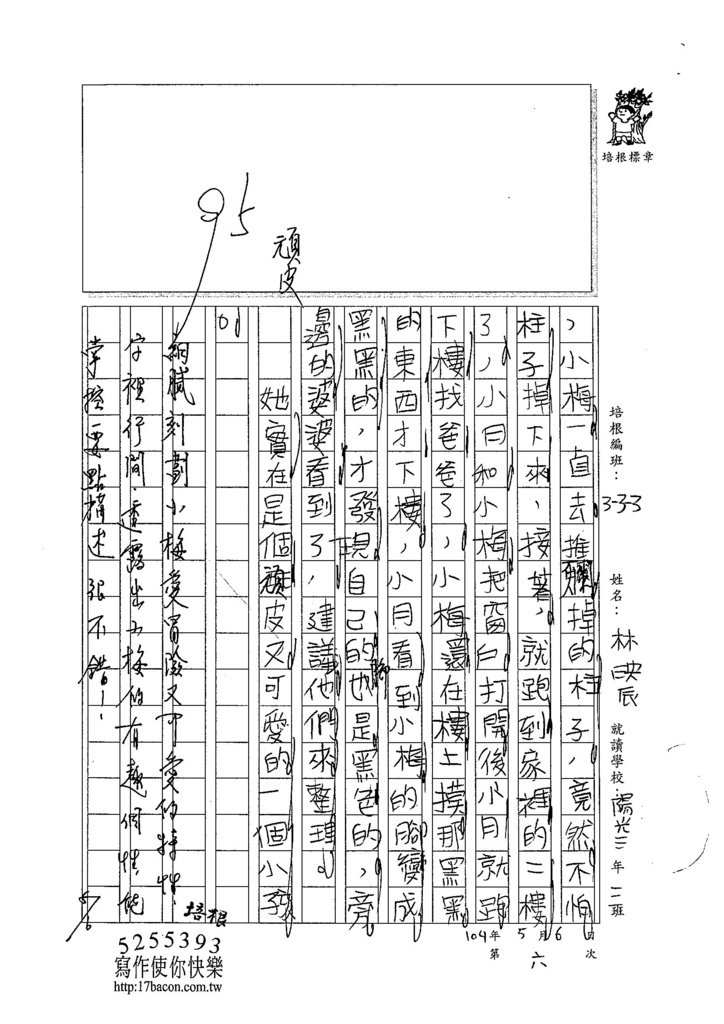 培根標章
95
頑皮
培根編班：3-3-3
姓名：林映辰
就讀學校 陽光三年二班
104年5月6日
第六次
，小梅一直去推爛掉的柱子，竟然不怕
柱子掉下來，接著，就跑到家裡的二樓
了，小月和小梅把窗戶打開後小月就跑
下樓找爸爸了，小梅還在樓上摸那黑黑
的東西才下樓，小月看到小梅的腳變成
黑黑的，才發現自己的腳也是黑色的，旁
邊的婆婆看到了，建議他們來整理。
她實在是個頑皮又可愛的一個小孩
細膩刻劃小梅愛冒險又可愛的特性
字裡行間，透露出小梅的有趣個性，能
掌控要點描述，很不錯！！
5/6
培根
5255393
寫作使你快樂
http:17bacon.com.tw